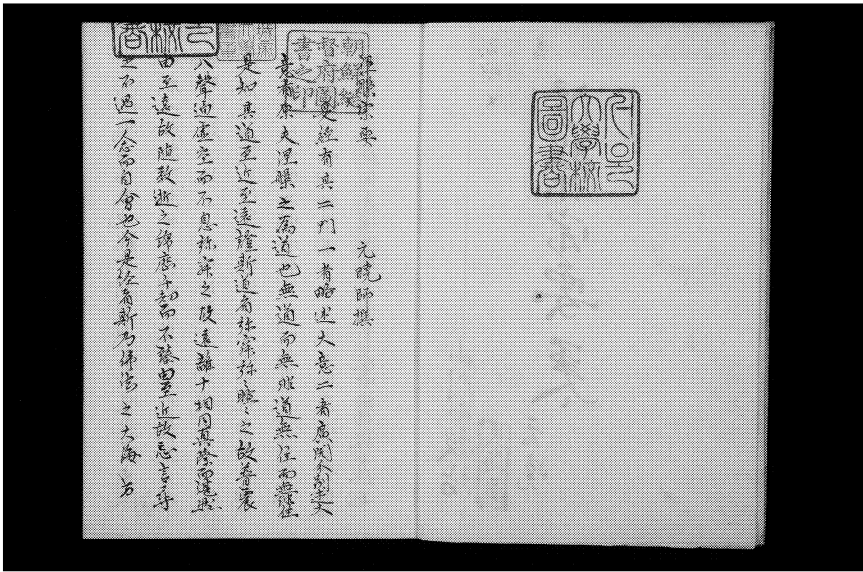 大學校
圖書
朝鮮總
督府圖
書之印
涅槃宗要　元曉師撰
是經有其二門一者略述大意二者廣開分別述大
意者原夫涅槃之爲道也無道而無非道無住而無非住
是知其道至近至遠證斯道者弥寂弥喧弥喧之故普震
八聲遍虛空而不息弥寂之故遠離十相同真際而湛然
由至遠故随教逝之綿歷千劫而不臻由至近故忘言尋
之不過一念而自會也今是経者斯乃佛法之大海方